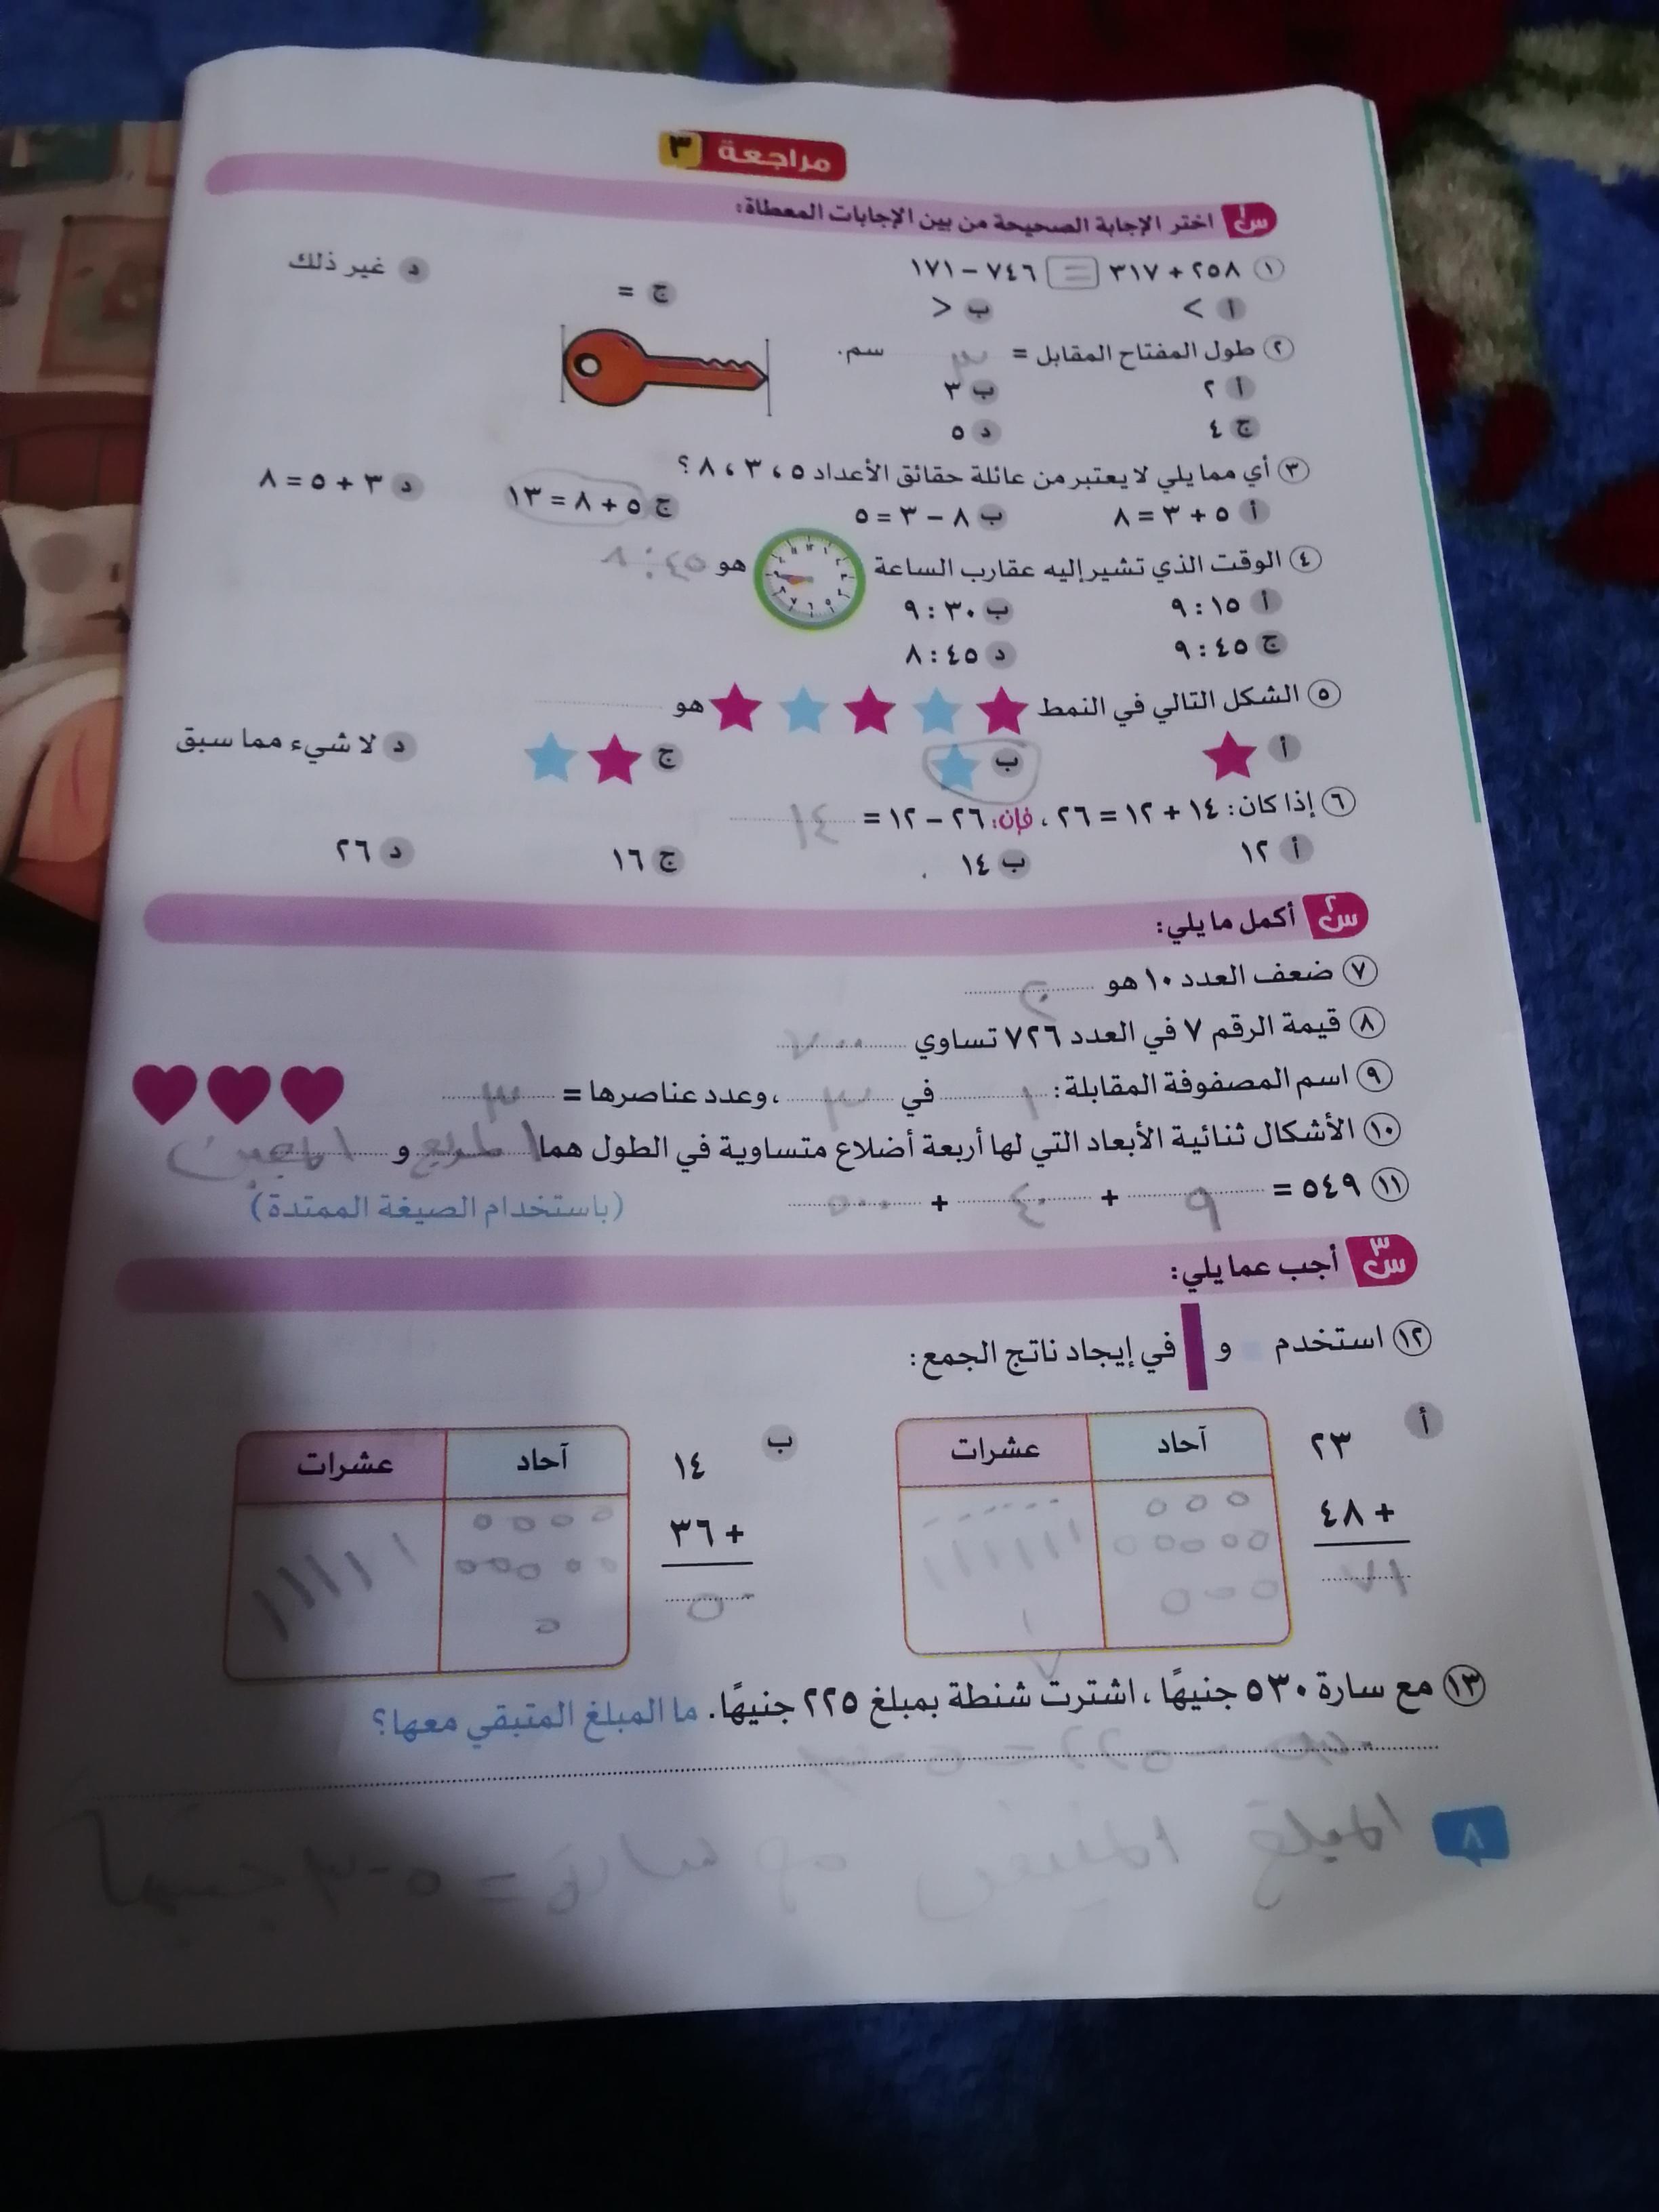 مراجعة ٣
س١ اختر الإجابة الصحيحة من بين الإجابات المعطاة:
١ ٢٥٨ + ٣١٧ = ٧٤٦ – ١٧١
أ > ب < ج = د غير ذلك
٢ طول المفتاح المقابل = ٣ سم.
أ ٢ ب ٣
ج ٤ د ٥
٣ أي مما يلي لا يعتبر من عائلة حقائق الأعداد ٥ ، ٣ ، ٨ ؟
أ ٥ + ٣ = ٨ ب ٨ – ٣ = ٥ ج ٥ + ٨ = ١٣ د ٣ + ٥ = ٨
٤ الوقت الذي تشير إليه عقارب الساعة هو ٨:٤٥
أ ٩:١٥ ب ٩:٣٠
ج ٩:٤٥ د ٨:٤٥
٥ الشكل التالي في النمط هو
أ ب ج د لا شيء مما سبق
٦ إذا كان: ١٤ + ١٢ = ٢٦ ، فإن: ٢٦ – ١٢ = ١٤
أ ١٢ ب ١٤ ج ١٦ د ٢٦
س٢ أكمل ما يلي:
٧ ضعف العدد ١٠ هو ٢٠
٨ قيمة الرقم ٧ في العدد ٧٢٦ تساوي ٧٠٠
٩ اسم المصفوفة المقابلة: ١ في ٣ ، وعدد عناصرها = ٣
١٠ الأشكال ثنائية الأبعاد التي لها أربعة أضلاع متساوية في الطول هما المربع و المعين
١١ ٥٤٩ = ٩ + ٤٠ + ٥٠٠ (باستخدام الصيغة الممتدة)
س٣ أجب عما يلي:
١٢ استخدم و في إيجاد ناتج الجمع:
أ ٢٣ + ٤٨ ٧١ آحاد عشرات
ب ١٤ + ٣٦ ٥٠ آحاد عشرات
١٣ مع سارة ٥٣٠ جنيهًا ، اشترت شنطة بمبلغ ٢٢٥ جنيهًا. ما المبلغ المتبقي معها؟
٥٣٠ - ٢٢٥ = ٣٠٥
المبلغ المتبقي مع سارة = ٣٠٥ جنيها
٨